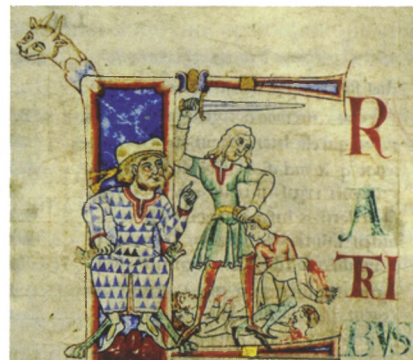 FR
A
TRI
BVS